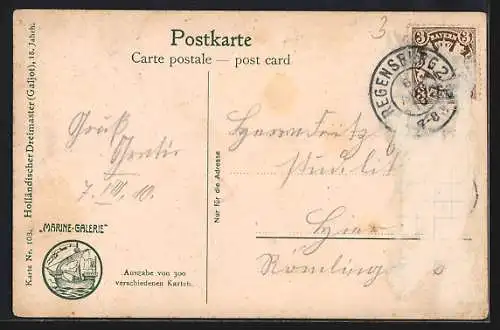 Postkarte
Carte postale — post card
3
3 BAYERN 3
REGENSBURG 2
7-8
Karte Nr. 103. Holländischer Dreimaster (Galjot), 18. Jahrh.
Gruß
7. VIII. 10.
Nur für die Adresse
Herrn Fritz
Hier
„MARINE-GALERIE"
Ausgabe von 300
verschiedenen Karten.